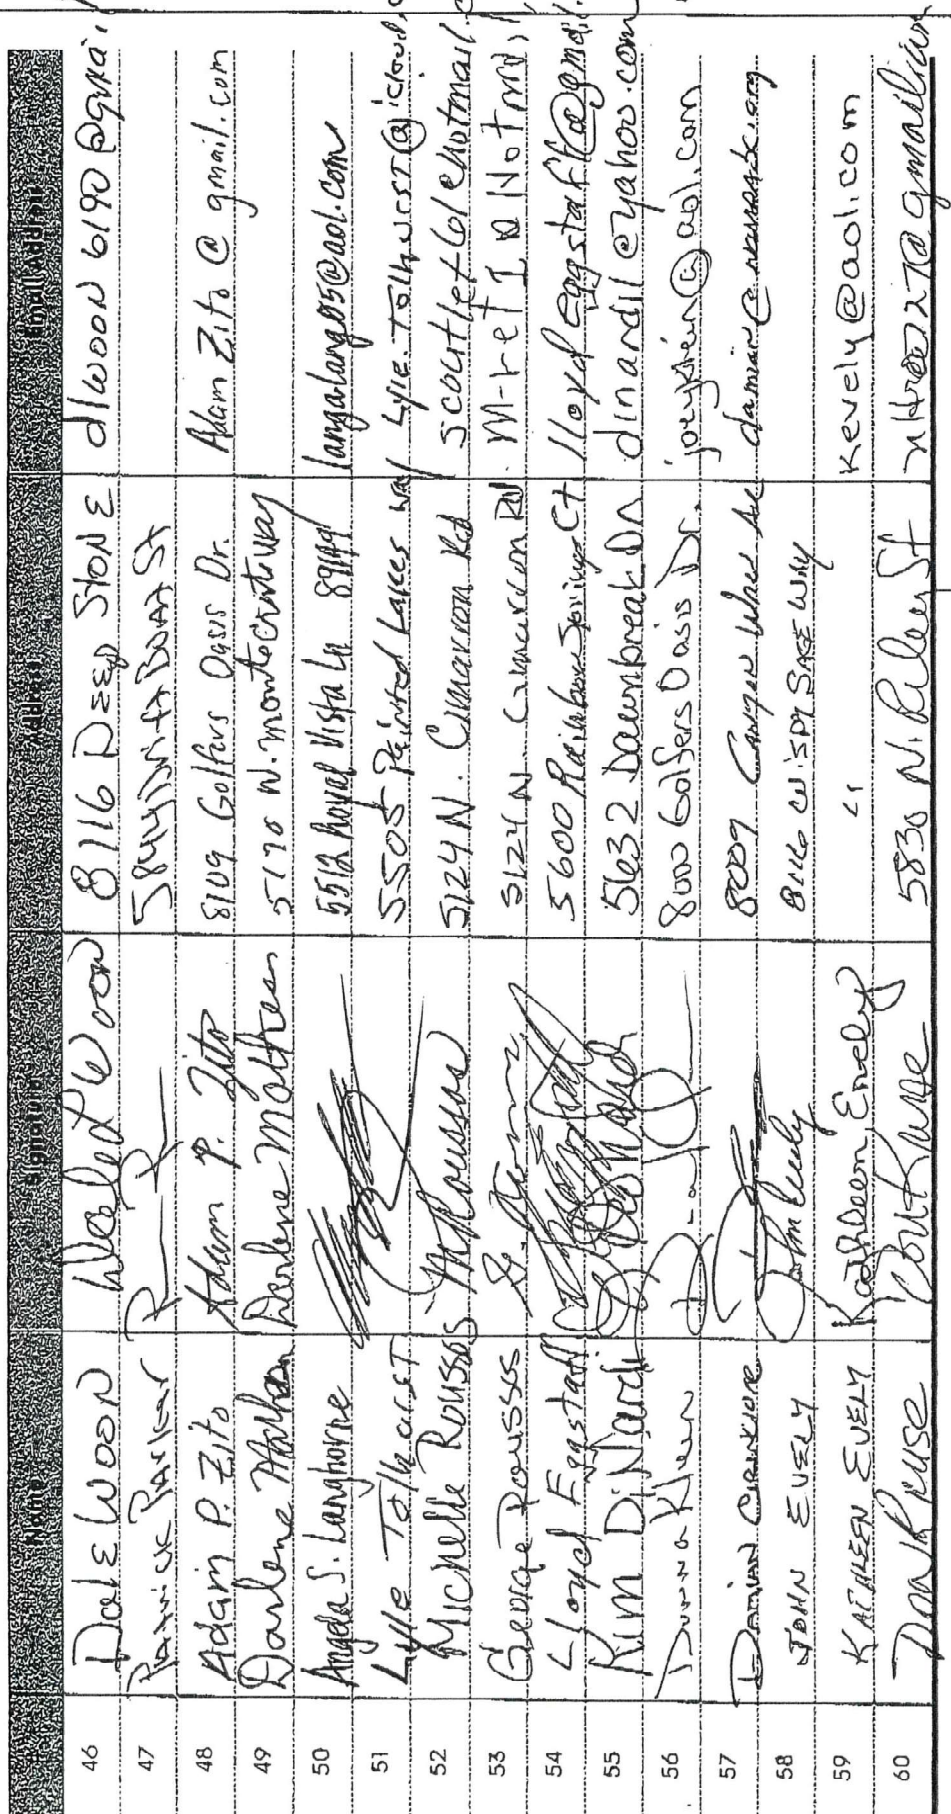 Name Signature Address Email Address
46 Dale Woon Dale L Woon 8116 Deep Stone dlwoon6190@gmai
47 Parker 5844
48 Adam P. Zito Adam P. Zito 8109 Golfers Oasis Dr. Adam Zito @ gmail.com
49 Darlene Darlene 5170 N. Montecristo Way
50 Angela S. Langhorne 5512 Royal Vista Ln 89149 langalang05@aol.com
51 Lyle Tolhurst 5505 Painted Lakes Way Lyle.Tolhurst@icloud.
52 Michelle Roussos MRoussos 5124 N. Cimarron Rd @hotmail.
53 George Roussos 5124 N. Cimarron Rd
54 Lloyd Eggstaff 5600 Rainbow Springs Ct lloydeggstaff@gmail.
55 Kim DiNardi 5632 Dawnbreak Dr dinardil@yahoo.com
56 Donna Klein 8000 Golfers Oasis Dr. @aol.com
57 Damian 8009 Canyon Ave
58 John Evely John Evely 8116 Wispy Sage Way
59 Kathleen Evely Kathleen Evely " kevely@aol.com
60 Don Kruse Don Kruse 5830 N. Riley St